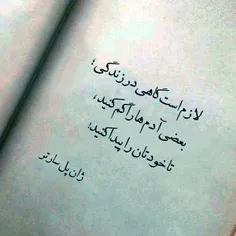 لازم است گاهی در زندگی؛
بعضی آدم ها را گم کنید،
تا خودتان را پیدا کنید؛
ژان پل سارتر